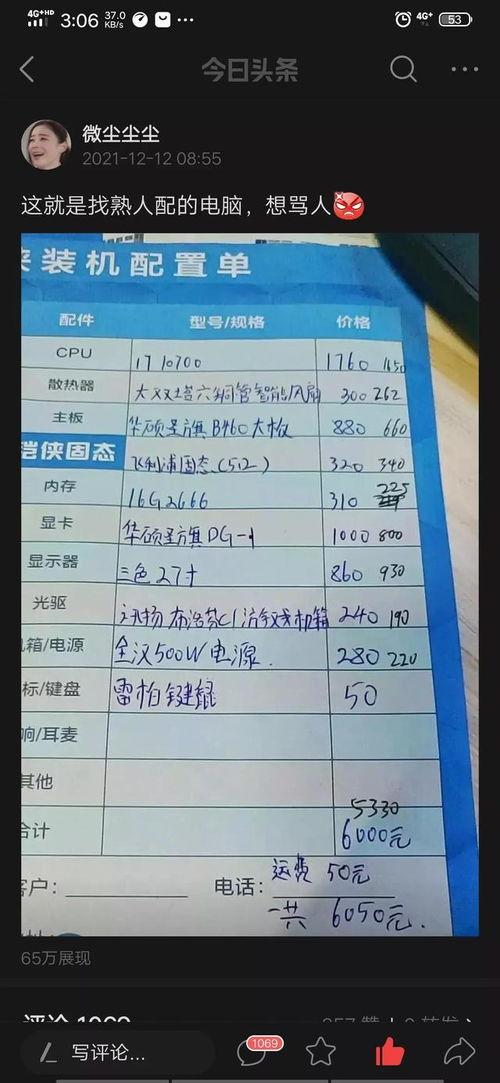 4G+HD 3:06 37.0 KB/s ... 4G+ 53
今日头条
微尘尘尘
2021-12-12 08:55
这就是找熟人配的电脑，想骂人
装机配置单
配件 型号/规格 价格
CPU I7 10700 1760 1650
散热器 大双塔六铜管智能风扇 300 262
主板 华硕呈旗B460大板 880 660
铠侠固态 飞利浦固态(512) 320 340
内存 16G2666 310 225
显卡 华硕呈旗DG-1 1000 800
显示器 三色27寸 860 930
光驱 机箱 240 190
箱/电源 全汉500W电源. 280 220
标/键盘 雷柏键鼠 50
响/耳麦
其他
5330
合计 6000元
客户: 电话: 运费 50元
一共 6050元.
65万展现
评论 1069
写评论... 1069